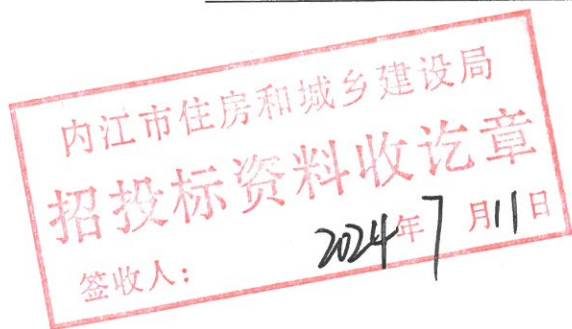 内江市住房和城乡建设局
招投标资料收讫章
2024年7月11日
签收人：